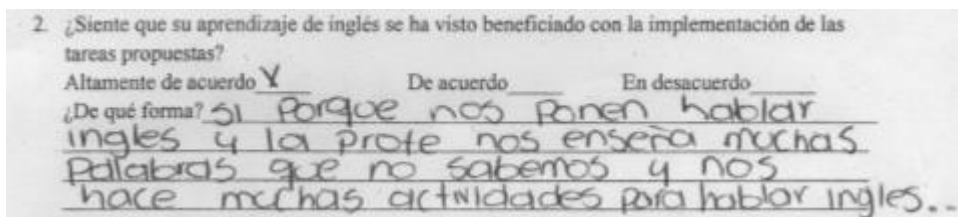 2. ¿Siente que su aprendizaje de inglés se ha visto beneficiado con la implementación de las
tareas propuestas?
Altamente de acuerdo X De acuerdo____ En desacuerdo____
¿De qué forma? si Porque nos Ponen hablar
ingles y la profe nos enseña muchas
Palabras que no sabemos y nos
hace muchas actividades para hablar ingles..